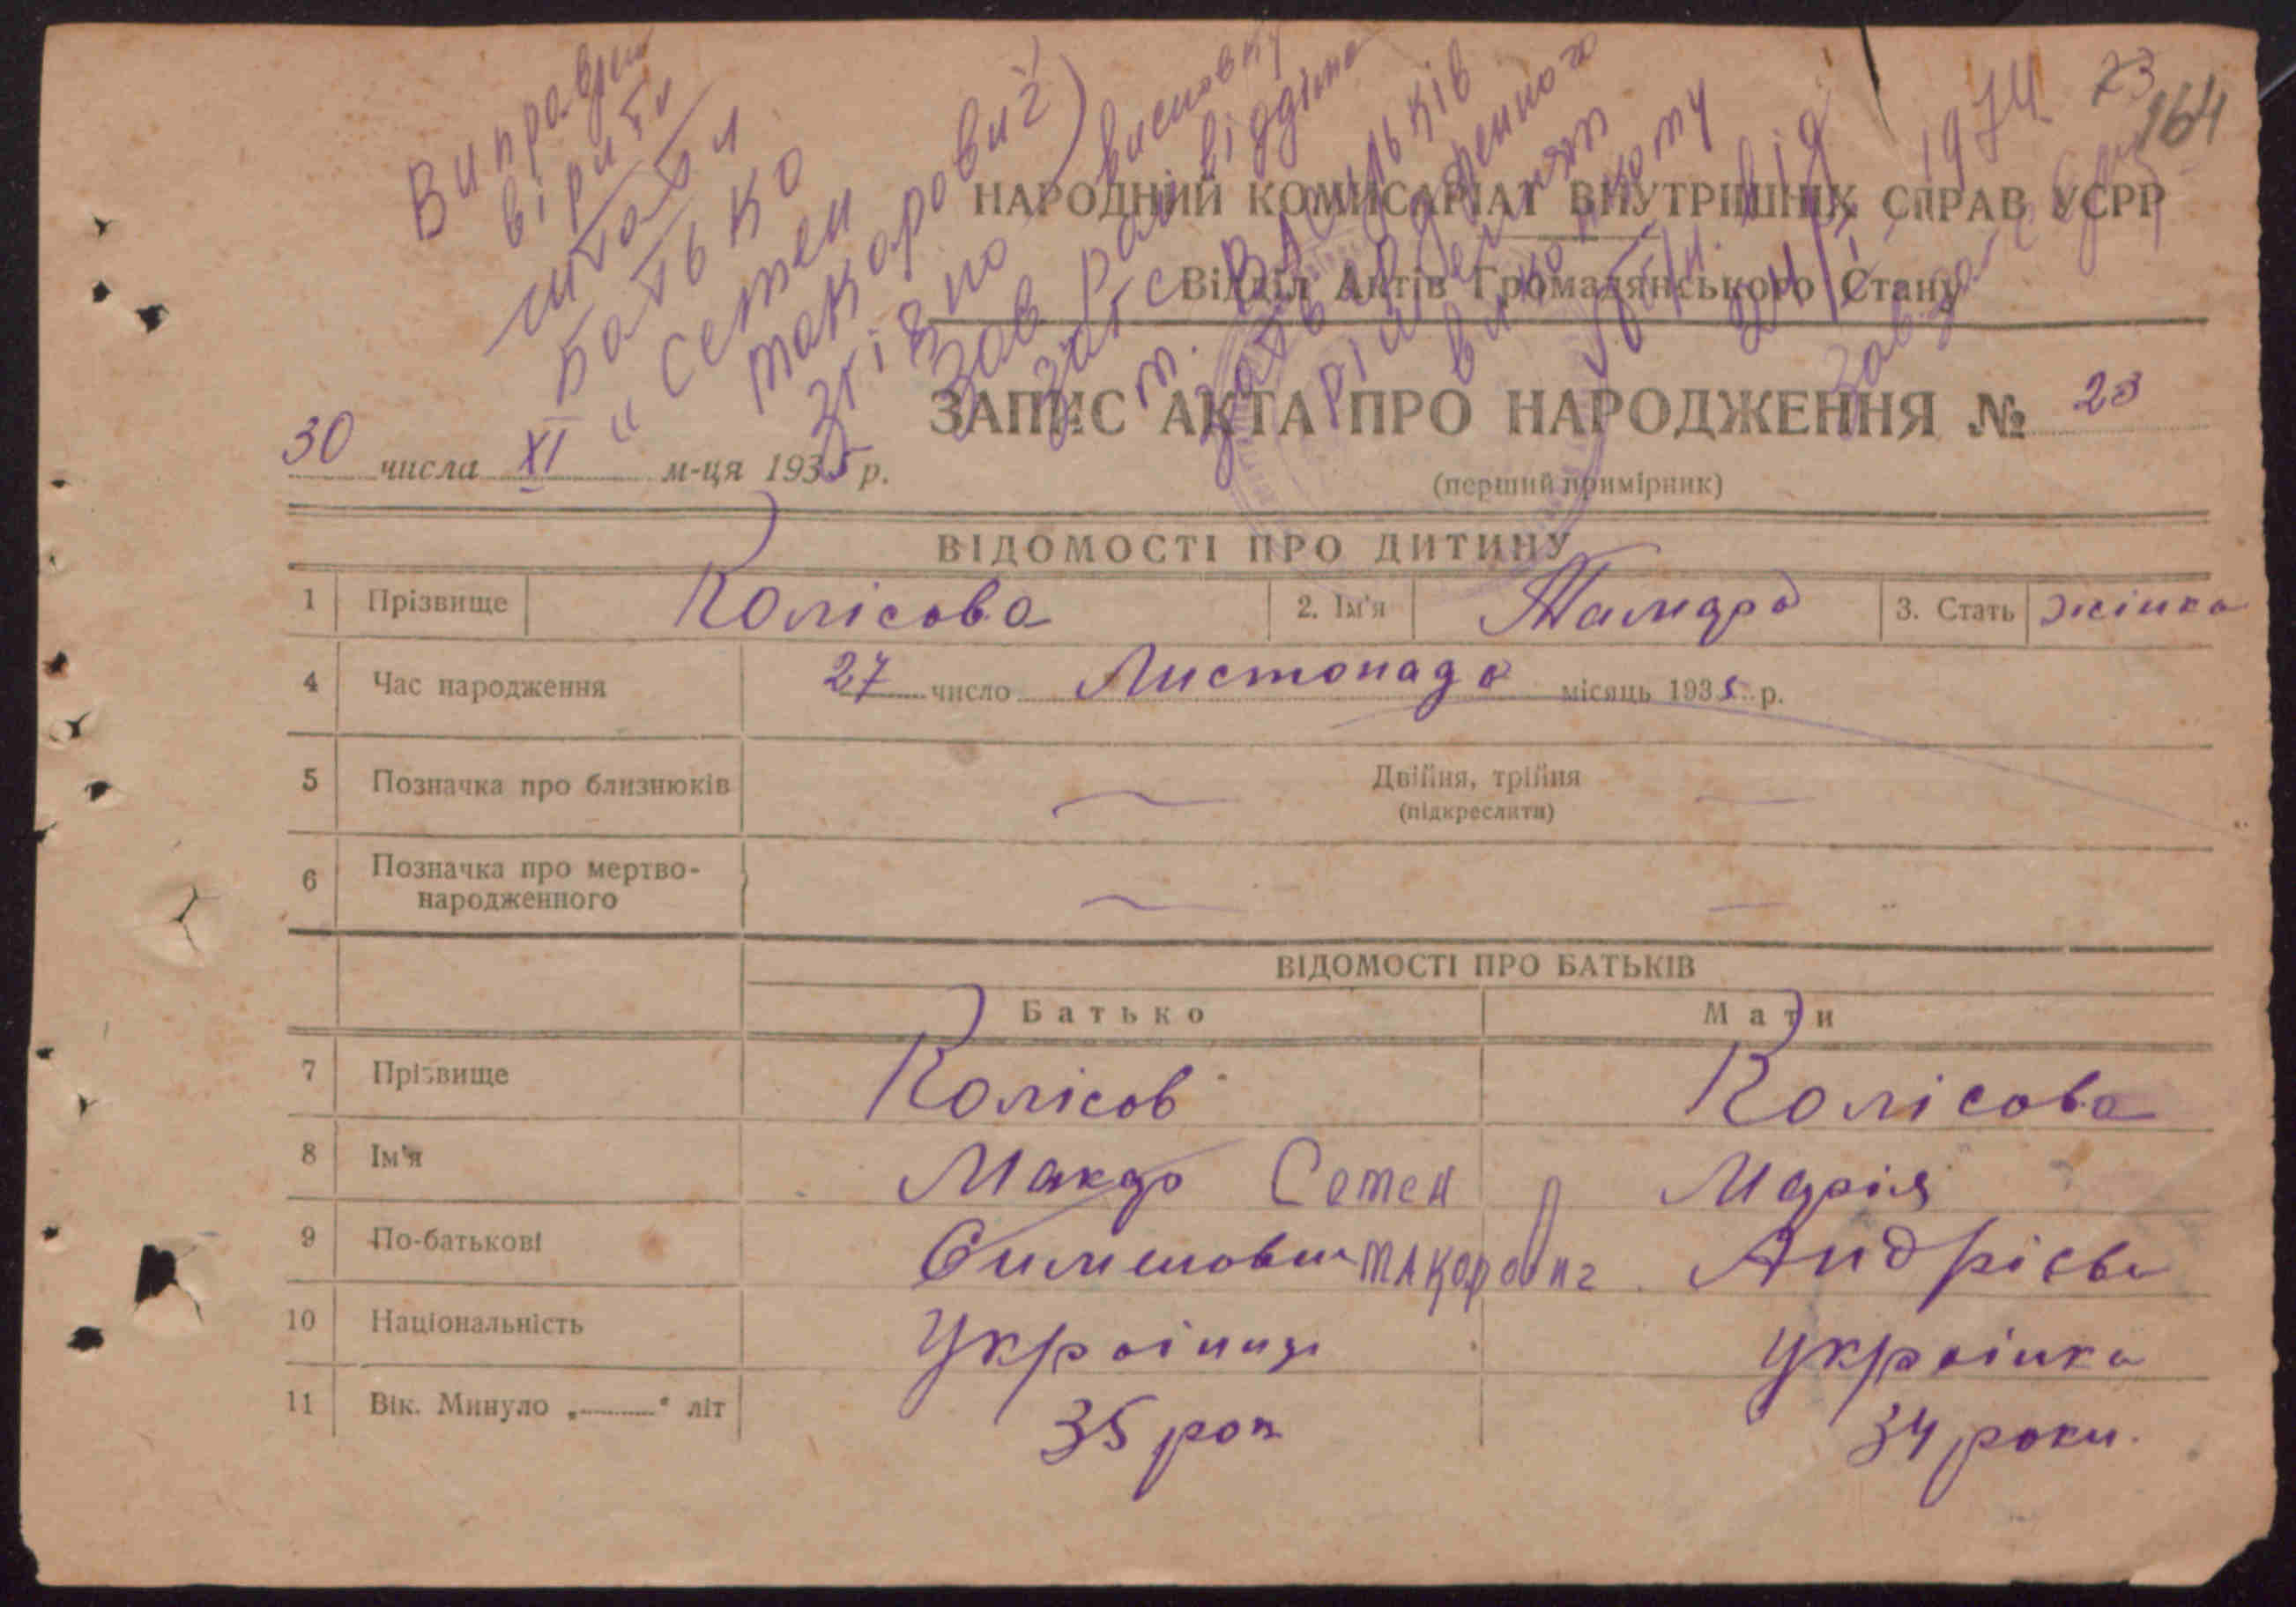 Виправлен
вірити
читати
батько
"Семен
Макарович"
згідно висновку
зав рай відділа
загс Васильків
м. затвердженого
рішенням
виконкому
від
24/I 1974
23
164
НАРОДНИЙ КОМІСАРІАТ ВНУТРІШНІХ СПРАВ УСРР
Відділ Актів Громадянського Стану
ЗАПИС АКТА ПРО НАРОДЖЕННЯ № 23
30 числа XI м-ця 1935 р.
(перший примірник)
ВІДОМОСТІ ПРО ДИТИНУ
1 Прізвище Колісова 2. Ім'я Тамара 3. Стать жінка
4 Час народження 27 число Листопада місяць 1935 р.
5 Позначка про близнюків Двійня, трійня
(підкреслити)
6 Позначка про мертво-
народженного
ВІДОМОСТІ ПРО БАТЬКІВ
Батько Мати
7 Прізвище Колісов Колісова
8 Ім'я Макар Семен Марія
9 По-батькові Симонович Макарович Андрієва
10 Національність Українця Українка
11 Вік. Минуло „ “ літ 35 рок 34 роки.